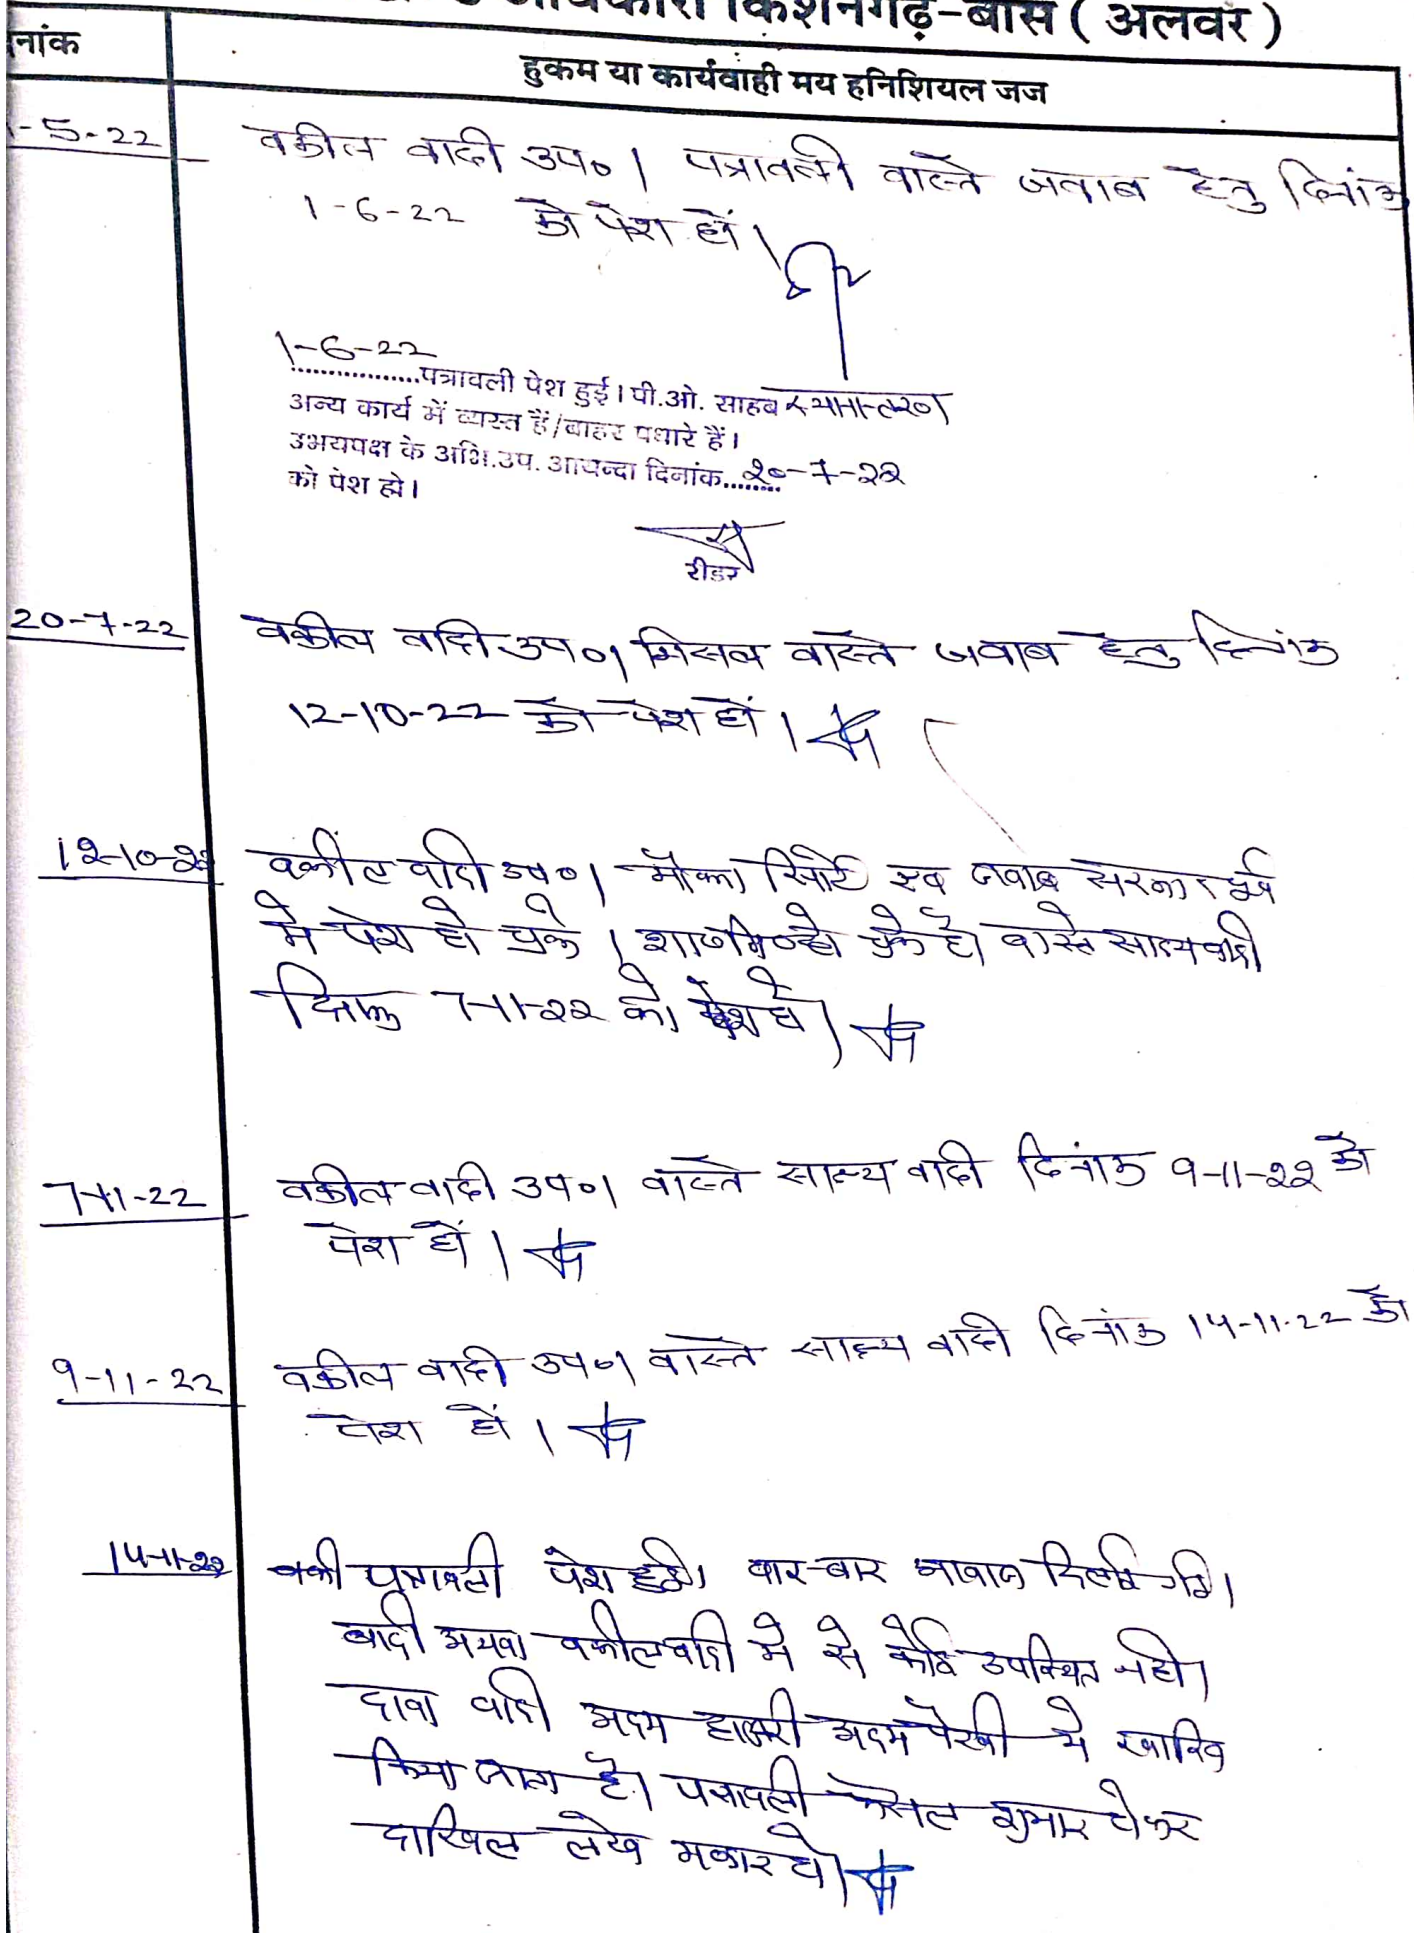 किशनगढ़-बास ( अलवर )
नांक
हुकम या कार्यवाही मय हनिशियल जज
-5-22
वकील वादी उप० । पत्रावली वास्ते जवाब हेतु दिनांक
1-6-22 को पेश हों ।
1-6-22
.................पत्रावली पेश हुई। पी.ओ. साहब स्थानान्तरण
अन्य कार्य में व्यस्त हैं/बाहर पधारे हैं।
उभयपक्ष के अभि.उप. आयन्दा दिनांक........20-7-22
को पेश हो।
रीडर
20-7-22
वकील वादी उप०। मिसल वास्ते जवाब हेतु दिनांक
12-10-22 को पेश हों ।
12-10-22
वकील वादी उप०। मौका रिपोर्ट एव जवाब सरकार पूर्व
मे पेश हो चुके । हो चुके है। वास्ते साक्ष्य वादी
दिनांक 7-11-22 को पेश हो।
7-11-22
वकील वादी उप०। वास्ते साक्ष्य वादी दिनांक 9-11-22 को
पेश हों ।
9-11-22
वकील वादी उप०। वास्ते साक्ष्य वादी दिनांक 14-11-22 को
पेश हों ।
14-11-22
पत्रावली पेश हुई। बार-बार आवाज दिलाई गई।
वादी अथवा वकील वादी मे से कोई उपस्थित नही।
दावा वादी अदम हाजरी अदम पैरवी मे खारिज
किया जाता है। पत्रावली फैसल शुमार होकर
दाखिल लेख मकार हो।